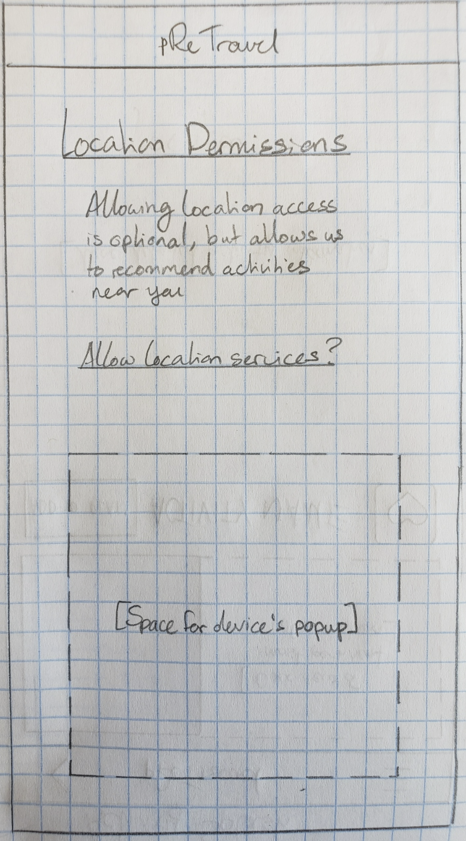 pReTravel
Location Permissions
Allowing location access
is optional, but allows us
to recommend activities
near you
Allow location services?
[Space for device's popup]